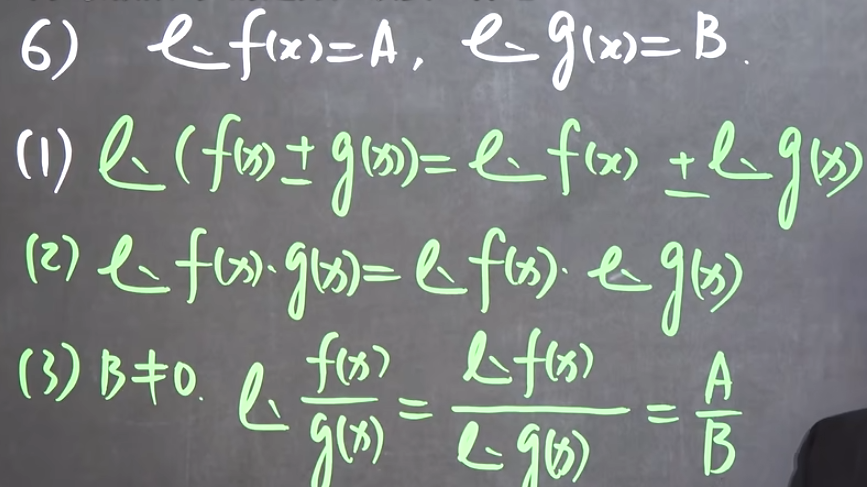 6) lim f(x)=A, lim g(x)=B.
(1) lim (f(x)±g(x))=lim f(x) ± lim g(x)
(2) lim f(x)·g(x)=lim f(x)·lim g(x)
(3) B≠0. lim f(x)/g(x) = lim f(x)/lim g(x) = A/B